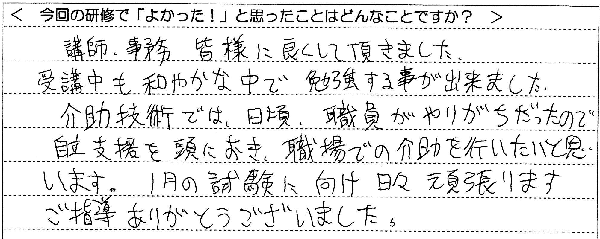 < 今回の研修で「よかった！」と思ったことはどんなことですか？ >
講師・事務 皆様に良くして頂きました。
受講中も和やかな中で 勉強する事が出来ました。
介助技術では、日頃、職員がやりがちだったので
自立支援を頭におき、職場での介助を行いたいと思
います。 1月の試験に向け 日々 頑張ります
ご指導ありがとうございました。